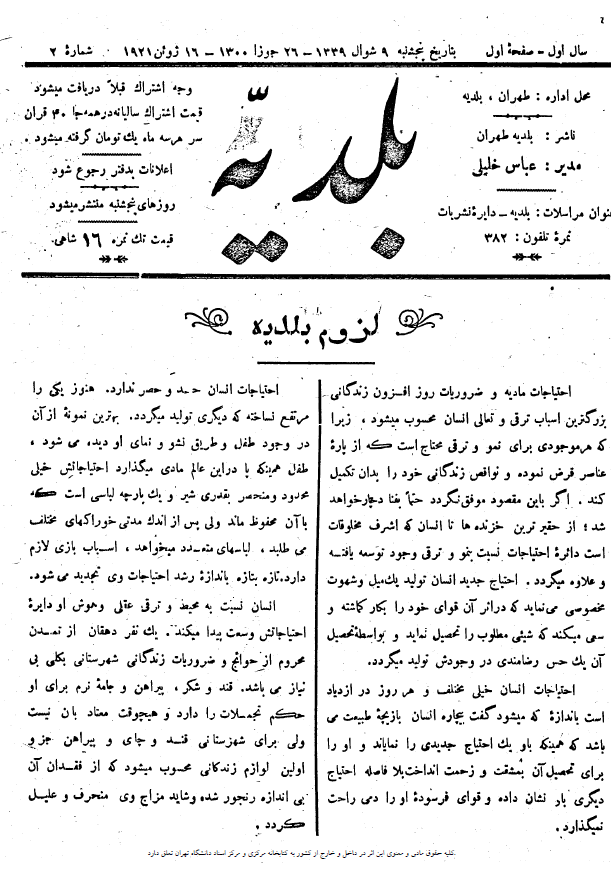 سال اول - صفحهٔ اول
بتاریخ پنجشنبه ۹ شوال ۱۳۳۹ - ۲۶ جوزا ۱۳۰۰ - ۱۶ ژوئن ۱۹۲۱
شمارهٔ ۲
محل اداره : طهران ، بلدیه
ناشر : بلدیه طهران
مدیر : عباس خلیلی
عنوان مراسلات : بلدیه - دایرهٔ نشریات
نمرهٔ تلفون : ۳۸۲
بلدیّه
وجه اشتراك قبلاً دریافت میشود
قیمت اشتراك سالیانه درهمه‌جا ۴۰ قران
سر هرسه ماه یك تومان گرفته میشود .
اعلانات بدفتر رجوع شود
روزهای پنجشنبه منتشر میشود
قیمت تك نمره ۱۶ شاهی.
لزوم بلدیه
احتیاجات مادیه و ضروریات روز افزون زندگانی
بزرگترین اسباب ترقی و تعالی انسان محسوب میشود ، زیرا
که هرموجودی برای نمو و ترقی محتاج است که از پارهٔ
عناصر قرض نموده و نواقص زندگانی خود را بدان تکمیل
کند . اگر باین مقصود موفق نگردد حتماً بفنا دچارخواهد
شد ؛ از حقیر ترین خزنده ها تا انسان که اشرف مخلوقات
است دائرهٔ احتیاجات نسبت بنمو و ترقی وجود توسعه یافته
و علاوه میگردد . احتیاج جدید انسان تولید یك میل وشهوت
مخصوصی می‌نماید که دراثر آن قوای خود را بکار گماشته و
سعی میکند که شیئی مطلوب را تحصیل نماید و بواسطهٔ تحصیل
آن یك حس رضامندی در وجودش تولید میگردد.
احتیاجات انسان خیلی مختلف و هر روز در ازدیاد
است باندازهٔ که میشود گفت بیچاره انسان بازیچهٔ طبیعت می
باشد که همینکه باو یك احتیاج جدیدی را نمایاند و او را
برای تحصیل آن بمشقت و زحمت انداخت بلا فاصله احتیاج
دیگری باز نشان داده و قوای فرسودهٔ او را دمی راحت
نمیگذارد.
احتیاجات انسان حد و حصر ندارد. هنوز یکی را
مرتفع نساخته که دیگری تولید میگردد. بهترین نمونهٔ از آن
در وجود طفل و طریق نشو و نمای او دیده می شود ،
طفل همینکه پا دراین عالم مادی میگذارد احتیاجاتش خیلی
محدود ومنحصر بقدری شیر و یك پارچه لباسی است که
با آن محفوظ ماند ولی پس از اندك مدتی خوراکهای مختلف
می طلبد ، لباسهای متعدد میخواهد ، اسباب بازی لازم
دارد.تازه بتازه باندازهٔ رشد احتیاجات وی تجدید می شود.
انسان نسبت به محیط و ترقی عقلی وهوش او دایرهٔ
احتیاجاتش وسعت پیدا میکند. یك نفر دهقان از تمدن
محروم از حوائج و ضروریات زندگانی شهرستانی بکلی بی
نیاز می باشد. قند و شکر ، پیراهن و جامهٔ نرم برای او
حکم تجملات را دارد و هیچوقت معتاد بان نیست
ولی برای شهرستانی قند و چای و پیراهن جزو
اولین لوازم زندگانی محسوب میشود که از فقدان آن
بی اندازه رنجور شده وشاید مزاج وی منحرف و علیل
گردد .
کلیه حقوق مادی و معنوی این اثر در داخل و خارج از کشور به کتابخانه مرکزی و مرکز اسناد دانشگاه تهران تعلق دارد.